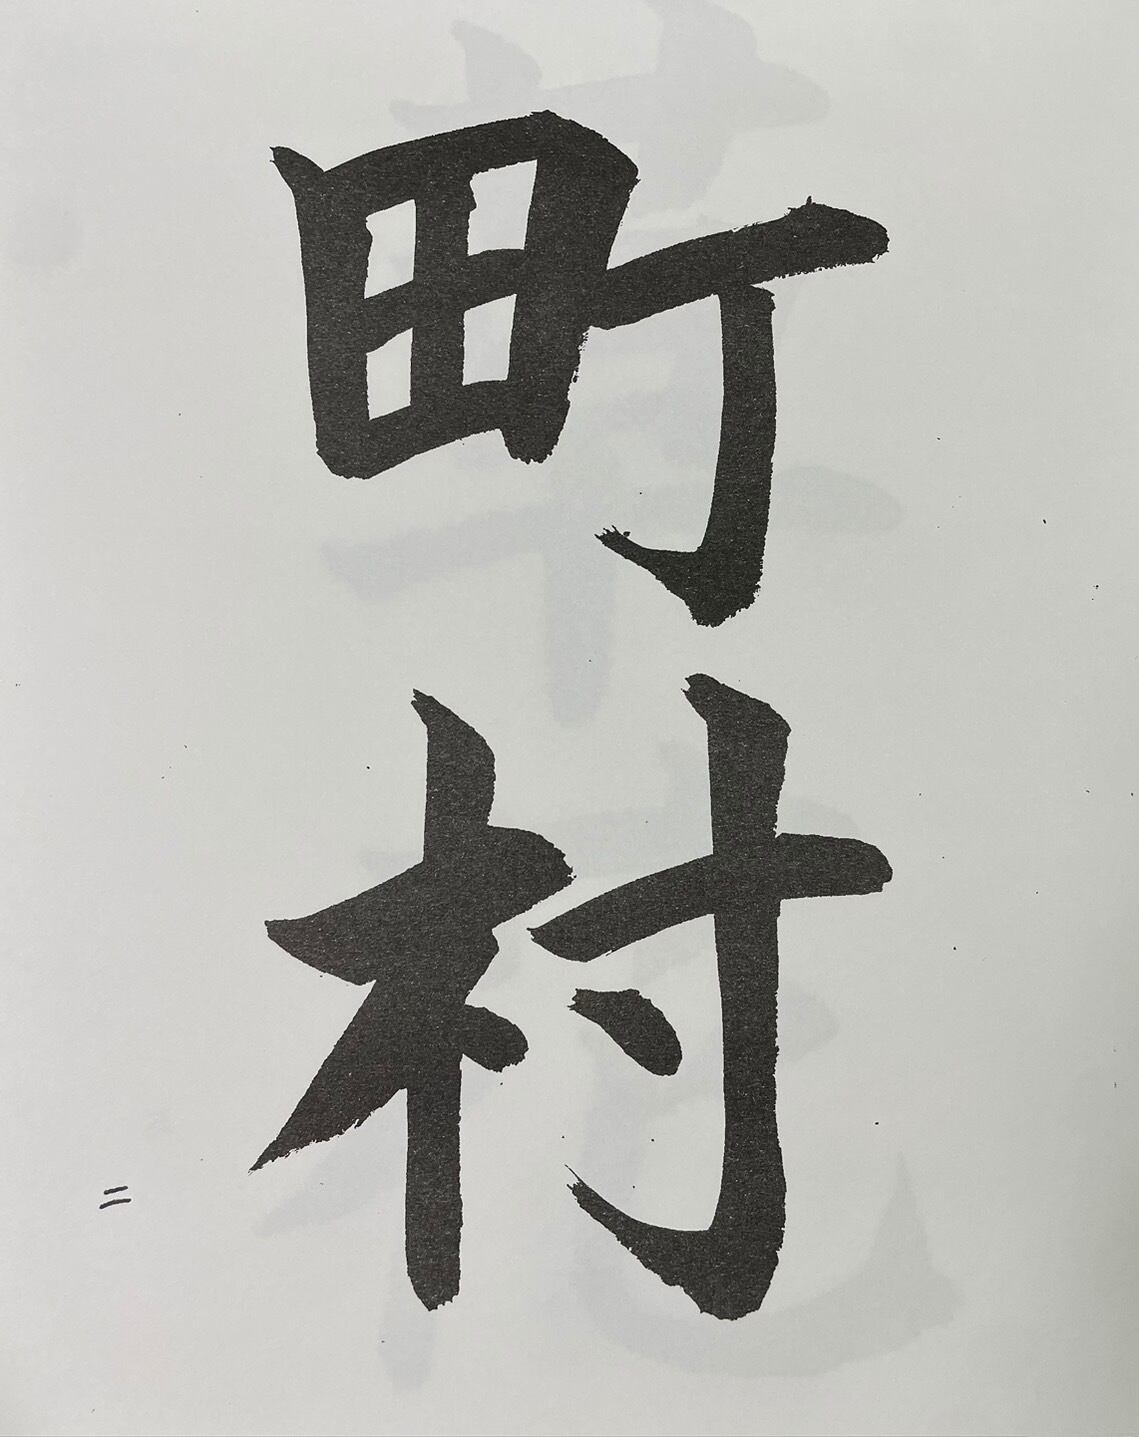 町村
二